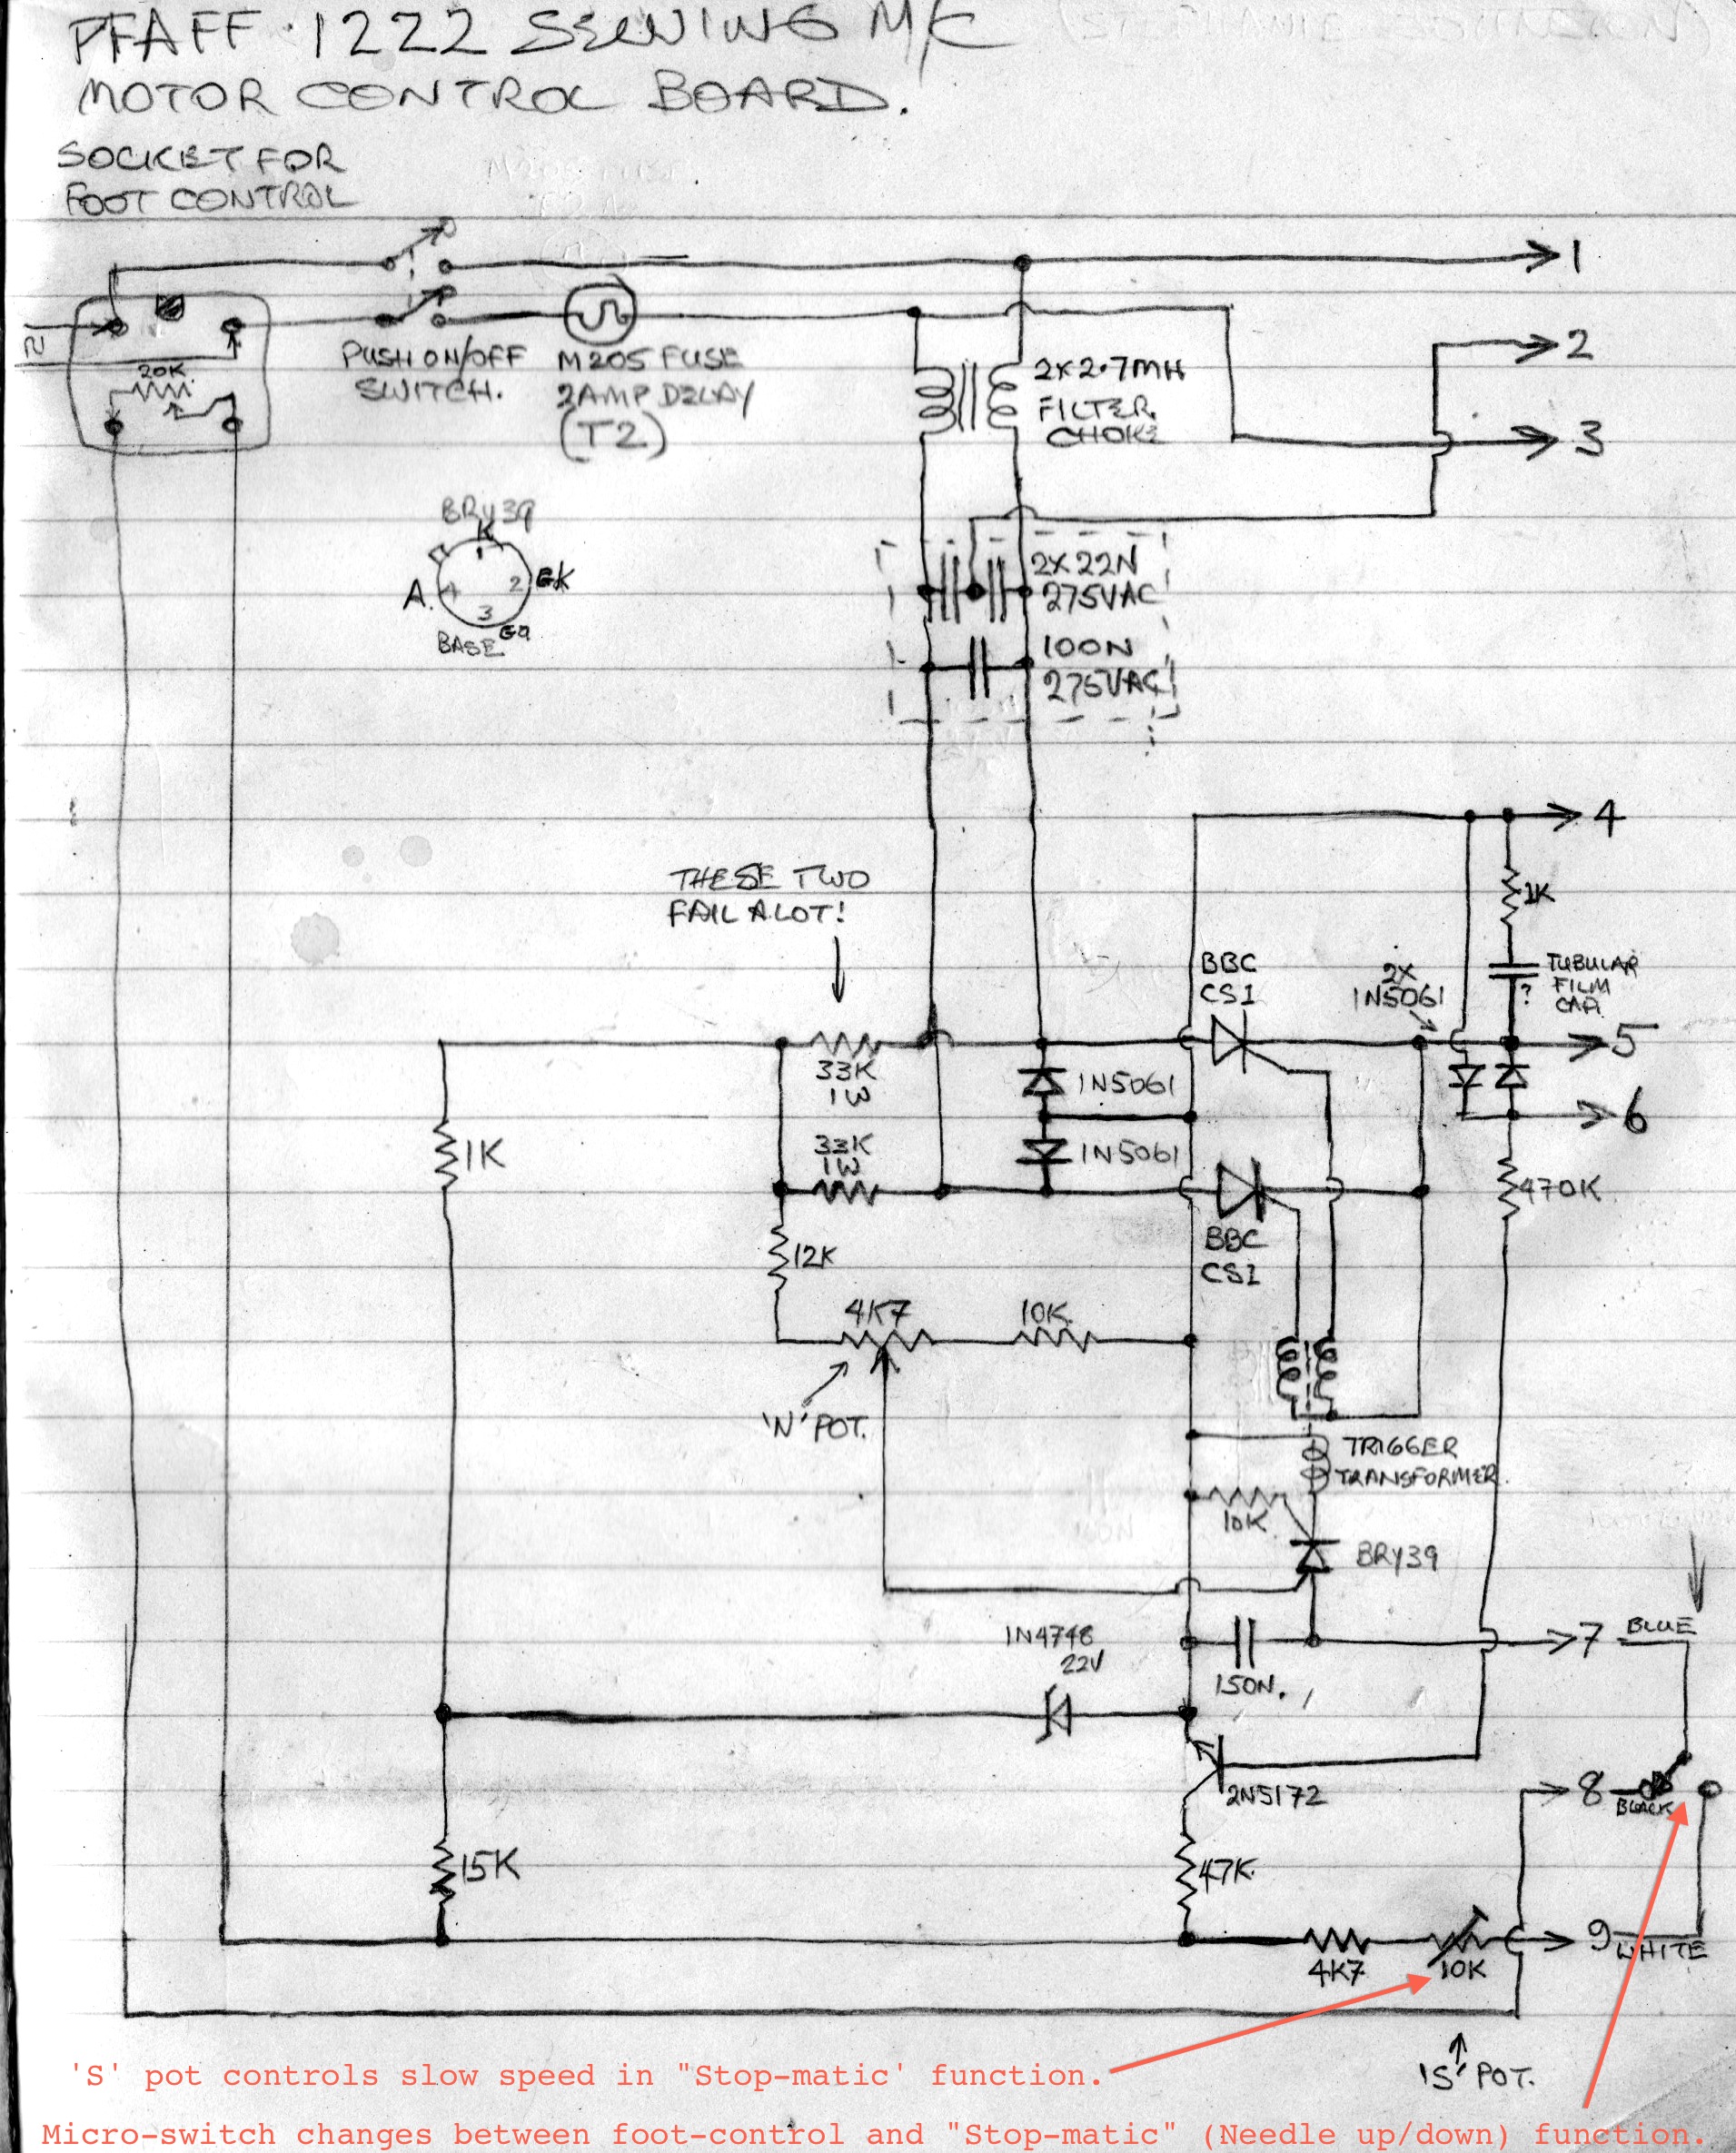 PFAFF 1222 SEWING M/C
MOTOR CONTROL BOARD.
SOCKET FOR
FOOT CONTROL
1
N
20K
PUSH ON/OFF
SWITCH.
M205 FUSE
2AMP DELAY
(T2)
2X2.7MH
FILTER
CHOKE
2
3
BRY39
K
1
A.
4
2
GK
3
GA
BASE
2X22N
275VAC
100N
275VAC
4
THESE TWO
FAIL A LOT!
1K
BBC
CS1
2X
1N5061
TUBULAR
FILM
CAP.
?
5
33K
1W
1N5061
6
1K
33K
1W
1N5061
470K
BBC
CS1
12K
4K7
10K
'N' POT.
TRIGGER
TRANSFORMER.
10K
BRY39
1N4748
22V
150N.
7
BLUE
8
BLACK
2N5172
15K
47K
9
WHITE
4K7
10K
'S' pot controls slow speed in "Stop-matic' function.
'S' POT.
Micro-switch changes between foot-control and "Stop-matic" (Needle up/down) function.